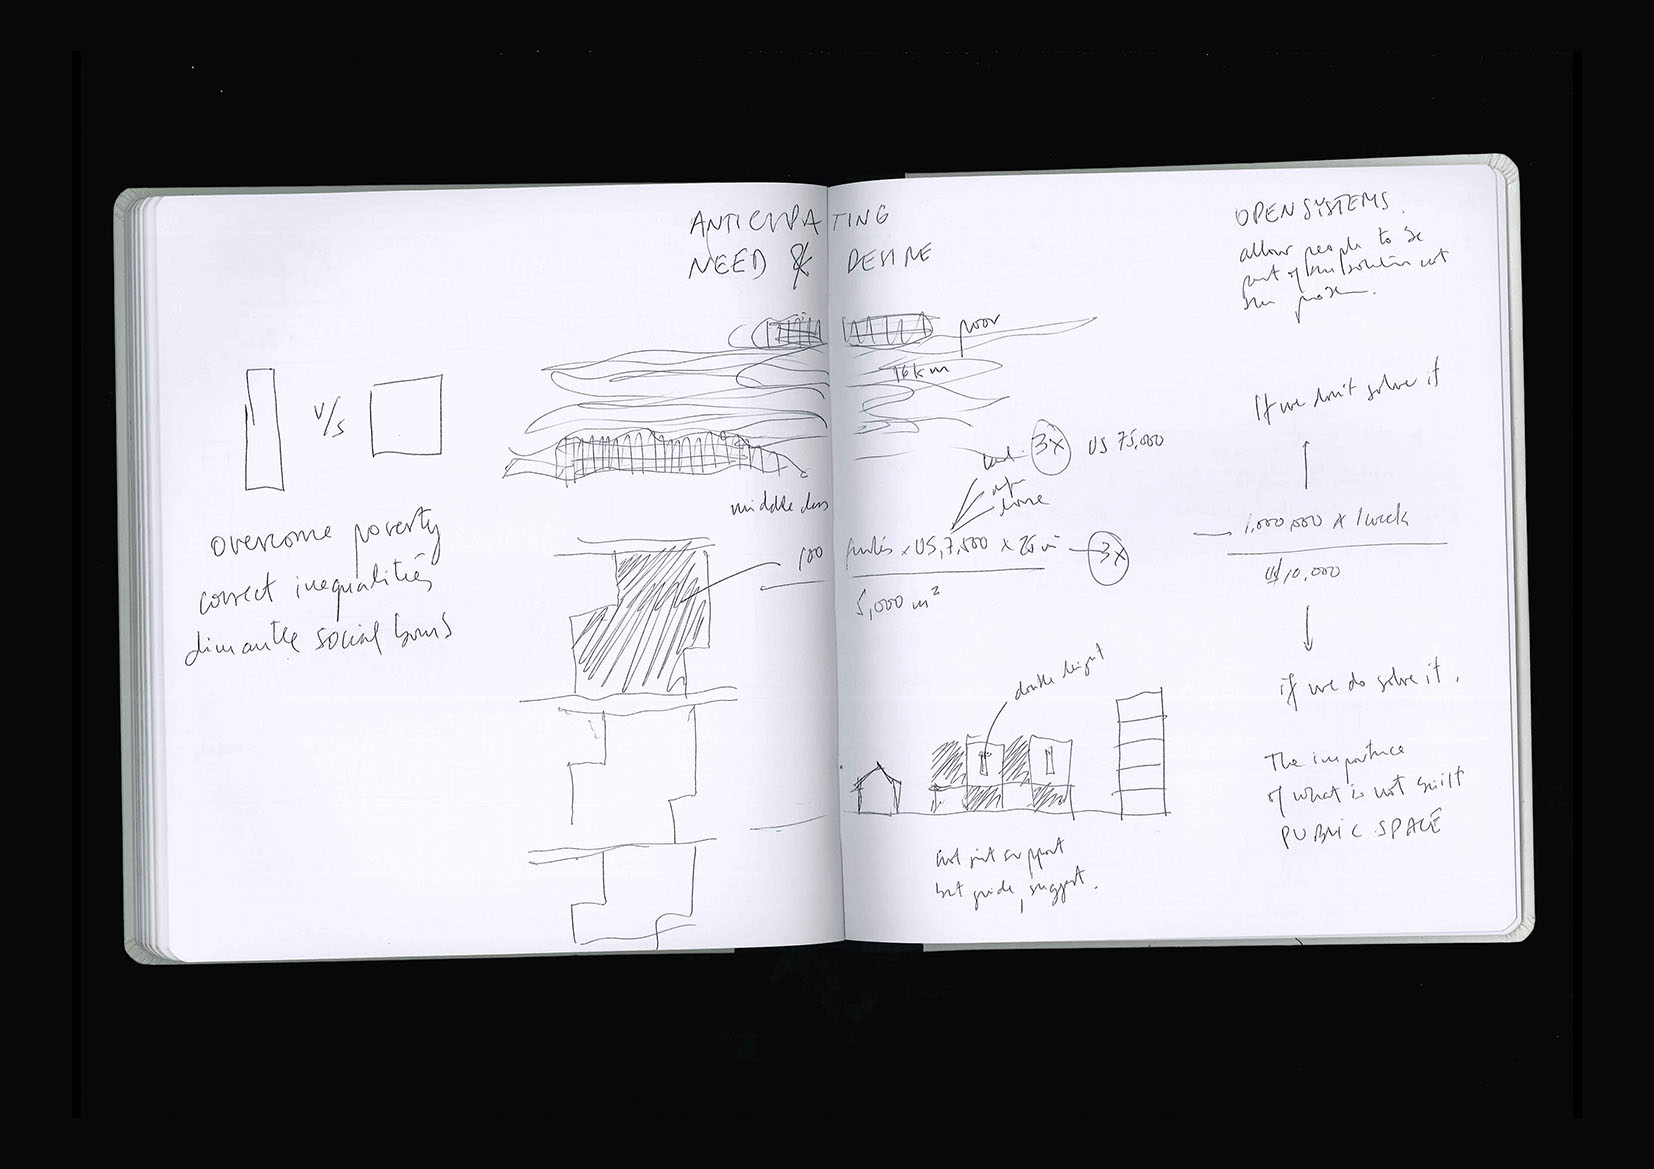 ANTICIPATING
NEED & DESIRE
V/S
overcome poverty
correct inequalities
dimantle social
poor
16 km
middle class
3x US 75,000
house
100 x US 7,500 x 25 m² 3x
5,000 m²
double height
not just support
but guide, suggest.
OPEN SYSTEMS.
allow people to be
part of the solution not
the problem.
If we don't solve it
1,000,000 x 1 week
US 10,000
if we do solve it.
The importance
of what is not built
PUBLIC SPACE